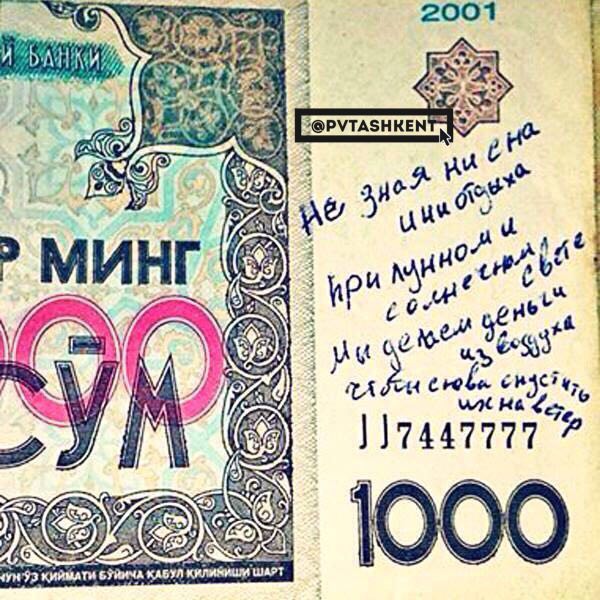 2001
Й БАНКИ
@PVTASHKENT
Не зная ни сна
и ни отдыха
При лунном и
солнечном свете
Мы делаем деньги
из воздуха
чтобы снова спустить
их на ветер
Р МИНГ
000
СЎМ
JJ7447777
1000
УЧУН ЎЗ ҚИЙМАТИ БЎЙИЧА ҚАБУЛ ҚИЛИНИШИ ШАРТ